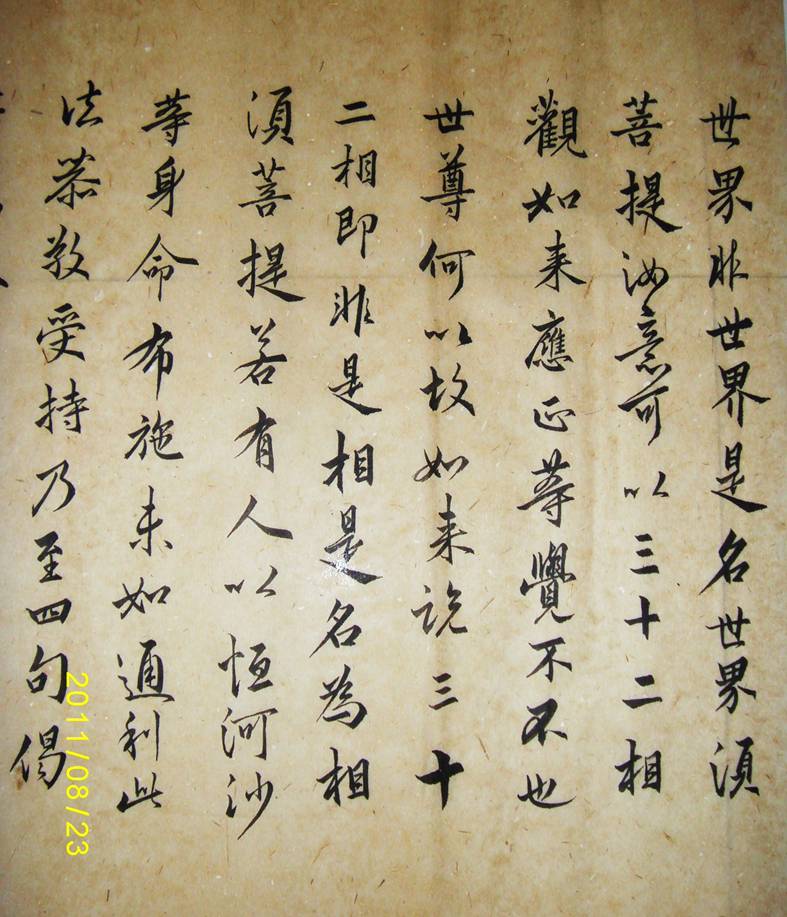 世界非世界是名世界須
菩提汝意可以三十二相
觀如来應正等覺不不也
世尊何以故如来说三十
二相即非是相是名為相
須菩提若有人以恒河沙
等身命布施未如通利此
法恭敬受持乃至四句偈
2011/08/23